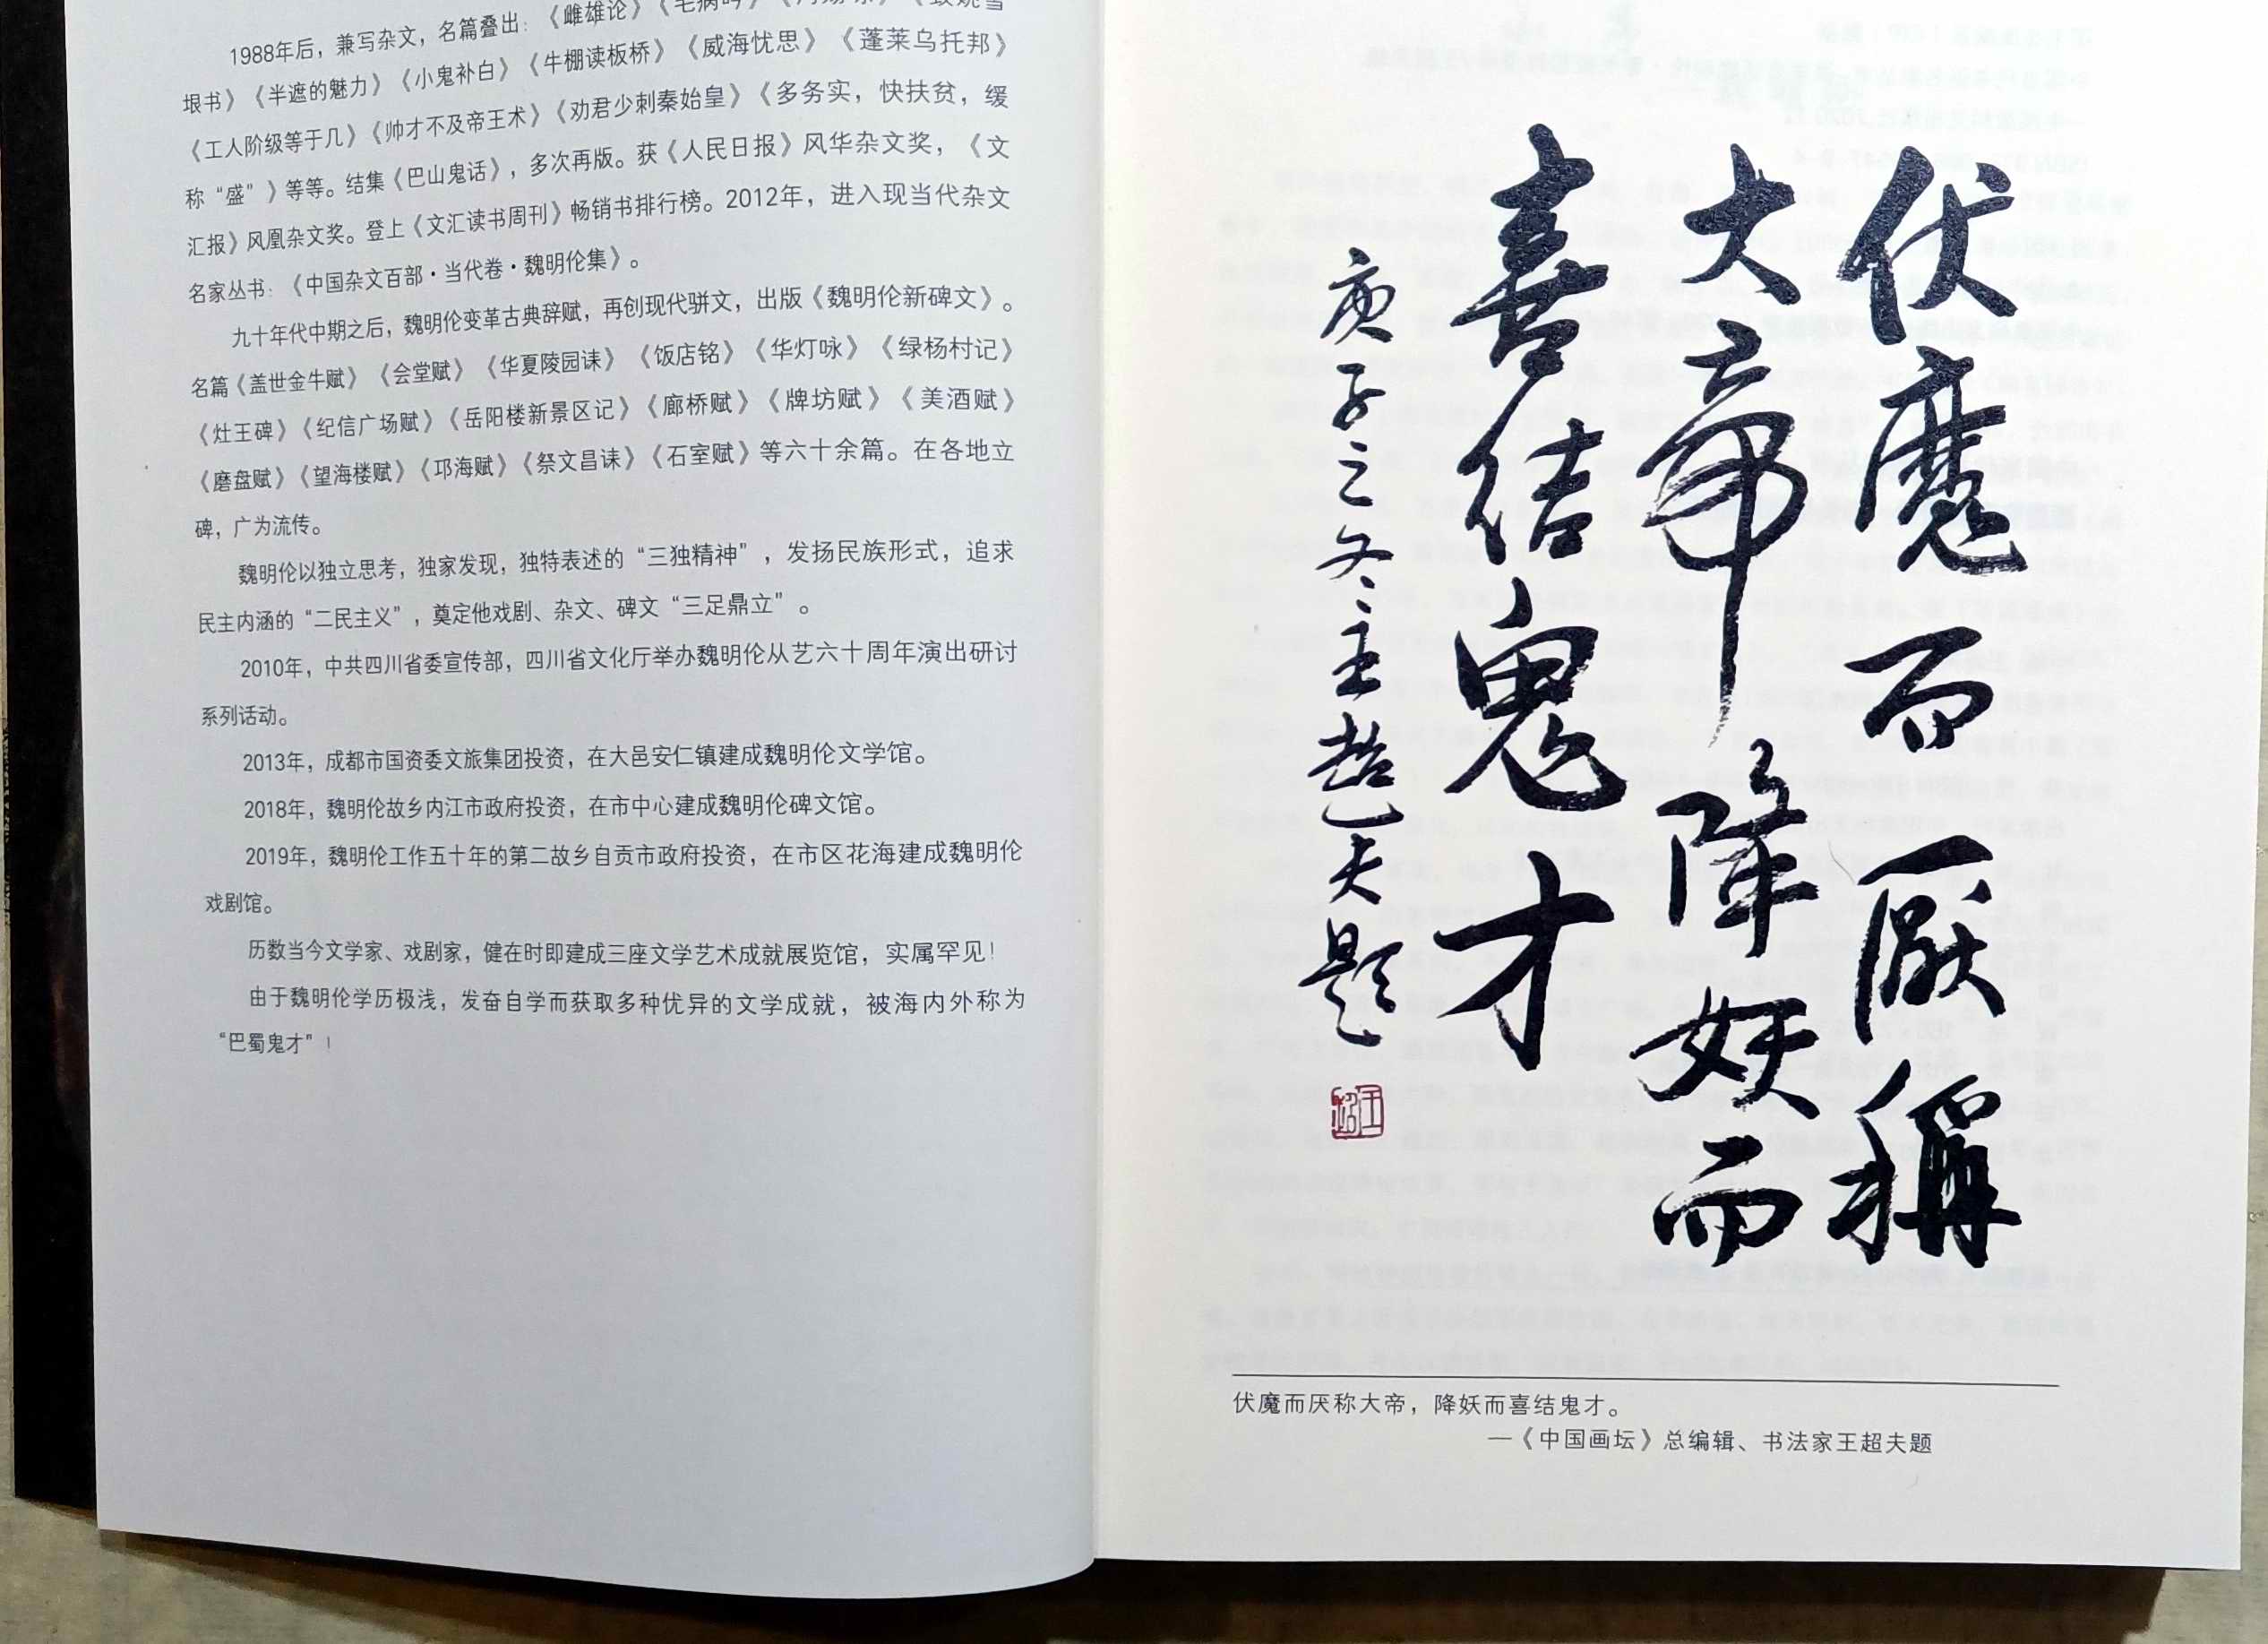 1988年后，兼写杂文，名篇叠出：《雌雄论》《毛病吟》
垠书》《半遮的魅力》《小鬼补白》《牛棚读板桥》《威海忧思》《蓬莱乌托邦》
《工人阶级等于几》《帅才不及帝王术》《劝君少刺秦始皇》《多务实，快扶贫，缓
称“盛”》等等。结集《巴山鬼话》，多次再版。获《人民日报》风华杂文奖，《文
汇报》风凰杂文奖。登上《文汇读书周刊》畅销书排行榜。2012年，进入现当代杂文
名家丛书：《中国杂文百部·当代卷·魏明伦集》。
九十年代中期之后，魏明伦变革古典辞赋，再创现代骈文，出版《魏明伦新碑文》。
名篇《盖世金牛赋》《会堂赋》《华夏陵园诔》《饭店铭》《华灯咏》《绿杨村记》
《灶王碑》《纪信广场赋》《岳阳楼新景区记》《廊桥赋》《牌坊赋》《美酒赋》
《磨盘赋》《望海楼赋》《邛海赋》《祭文昌诔》《石室赋》等六十余篇。在各地立
碑，广为流传。
魏明伦以独立思考，独家发现，独特表述的“三独精神”，发扬民族形式，追求
民主内涵的“二民主义”，奠定他戏剧、杂文、碑文“三足鼎立”。
2010年，中共四川省委宣传部，四川省文化厅举办魏明伦从艺六十周年演出研讨
系列活动。
2013年，成都市国资委文旅集团投资，在大邑安仁镇建成魏明伦文学馆。
2018年，魏明伦故乡内江市政府投资，在市中心建成魏明伦碑文馆。
2019年，魏明伦工作五十年的第二故乡自贡市政府投资，在市区花海建成魏明伦
戏剧馆。
历数当今文学家、戏剧家，健在时即建成三座文学艺术成就展览馆，实属罕见！
由于魏明伦学历极浅，发奋自学而获取多种优异的文学成就，被海内外称为
“巴蜀鬼才”！
伏魔而厭稱
大帝降妖而
喜结鬼才
庚子之冬王超夫题
伏魔而厌称大帝，降妖而喜结鬼才。
—《中国画坛》总编辑、书法家王超夫题